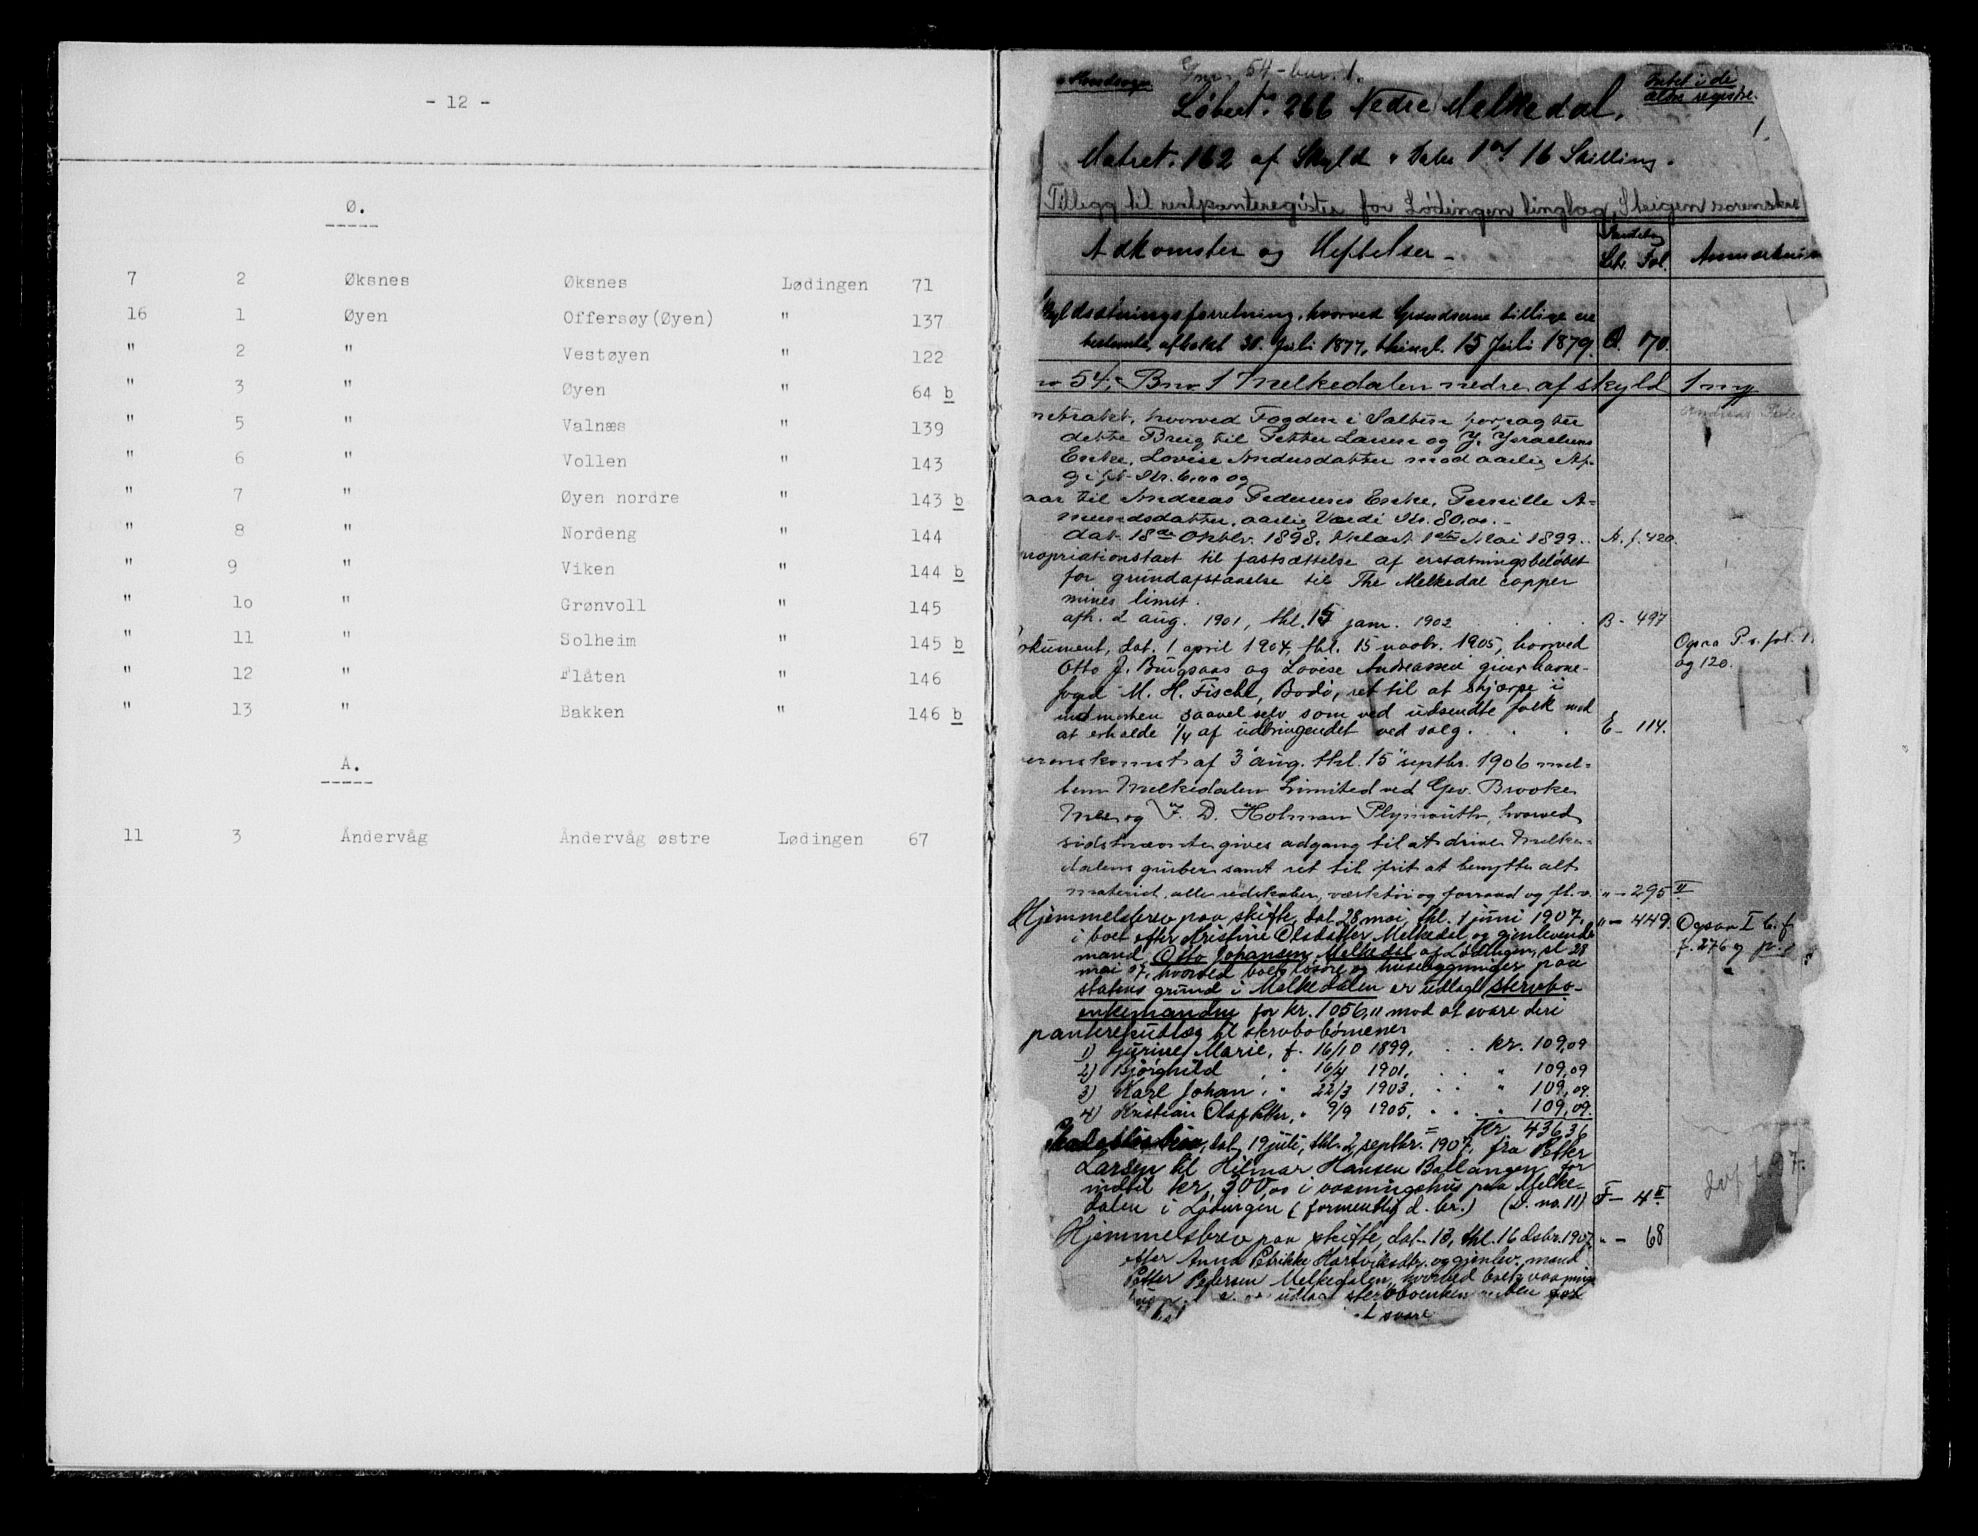 - 12 -
Ø.
7 2 Øksnes Øksnes Lødingen 71
16 1 Øyen Offersøy(Øyen) " 137
" 2 " Vestøyen " 122
" 3 " Øyen " 64 b
" 5 " Valnæs " 139
" 6 " Vollen " 143
" 7 " Øyen nordre " 143 b
" 8 " Nordeng " 144
" 9 " Viken " 144 b
" 1o " Grønvoll " 145
" 11 " Solheim " 145 b
" 12 " Flåten " 146
" 13 " Bakken " 146 b
Å.
11 3 Åndervåg Åndervåg østre Lødingen 67
Gnr. 54 - bnr. 1.
Intet i de
ældre registre.
Løbenr. 266 Nedre Melkedal.
1.
Matr. 162 af Skyld 1 16 Skilling.
Tillegg til realpanteregister for Lødingen tinglag, Steigen sorenskr
Adkomster og Heftelser
Litr. Fol.
Skyldsætningsforretning, hvorved Grændserne tillige ere
bestemte, afholdt 30. Juli 1877, thingl. 15 Juli 1879. O. 170.
no 54, Bno 1 Melkedalen nedre af skyld 1 my
hvorved Fogden i Salten forpagter
dette Brug til Petter Larsen og J. Israelsens
Enke, Lovise Andersdatter mod aarlig Af-
gift Kr. 6,00 og
til Andreas Pedersens Enke, Pernille A-
mundsdatter, aarlig Værdi Kr. 80,00.
dat. 18de Oktbr. 1898, thlæst 1ste Mai 1899. A. f. 420.
propriationstaxt til fastsættelse af erstatningsbeløbet
for grundafstaaelse til The Melkedal copper
mines limit.
afh. 2 aug. 1901, thl. 15 jan. 1902 B - 497
Dokument, dat. 1 april 1904, thl. 15 novbr. 1905, hvorved
Otto J. Bugsaas og Lovise Andreassen giver havne-
foged M. H. Fische, Bodø, ret til at skjærpe i
indmarken saavel selv som ved udsendte folk mod
at erholde 1/4 af udbringendet ved salg. E - 114.
Ogsaa P. s. fol. 11
og 120.
verenskomst af 3 aug. thl. 15 septbr. 1906 mel-
lem Melkedalen Limited ved Gev. Brooke
Mee og F. D. Holman Plymouth, hvorved
sidstnævnte gives adgang til at drive Melke-
dalens gruber samt ret til frit at benytte alt
materiel, alle redskaber, værktøi og forraad og fl. v. " - 295 II
Hjemmelsbrev paa skifte, dat. 28 mai, thl. 1 juni 1907, " - 449.
i boet efter Kristine Olsdatter Melkedal og gjenlevende
mand, Otto Johansen Melkedal af Lødingen, sl. 28
mai 07, hvorved boets løsøre og husebygninger paa
statens grund i Melkedalen er udlagt stervbo-
enkemanden for kr. 1056,11 mod at svare deri
panterehudlæg til stervbobørnene:
Ogsaa I b. f.
f. 276 og
1) Gurine Marie, f. 16/10 1899, kr. 109,09
2) Bjørghild " 16/4 1901, " 109,09
3) Karl Johan " 22/3 1903, " 109,09.
4) Kristian Olaf " 9/9 1905, " 109,09.
Kr 436,36
dat. 19 juli, thl. 2 septbr. 1907, fra Petter
Larsen til Hilmar Hansen Ballangen for
indtil kr. 300,00 i vaaningshus paa Melke-
dalen i Lødingen (formentlig d. br.) (D. no. 11) F - 4 II
Hjemmelsbrev paa skifte, dat. 13, thl. 16 dsbr. 1907, " - 68
efter Anna Petrikke Hartviksdtr. og gjenlev. mand
Petter Pedersen Melkedalen, hvorved boets vaanings
udlagt stervboenkemanden for
at svare